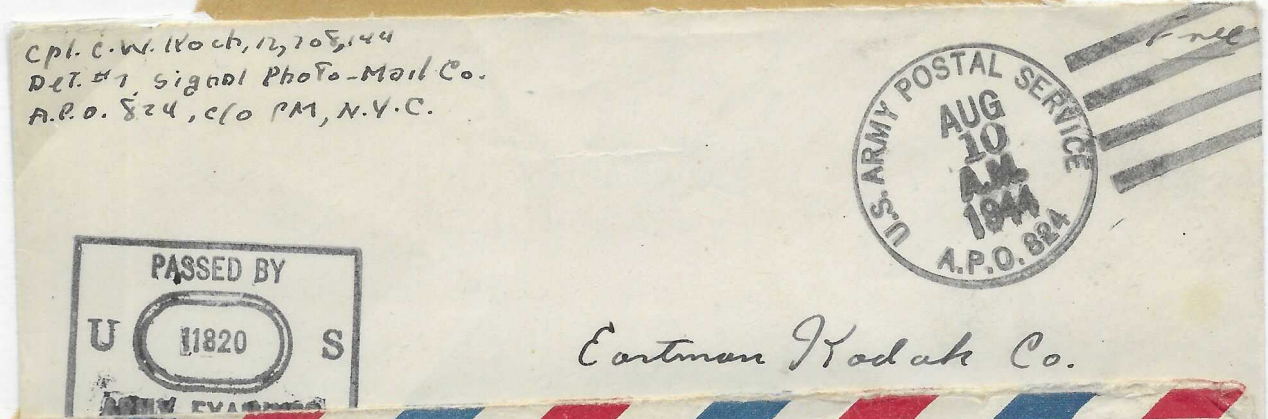 Cpl. C. W. Koch, 12,208,144
Det. #1, Signal Photo-Mail Co.
A.P.O. 824, c/o PM, N.Y.C.
Free
U.S. ARMY POSTAL SERVICE
AUG
10
A.M.
1944
A.P.O. 824
PASSED BY
U 11820 S
ARMY EXAMINER
Eastman Kodak Co.